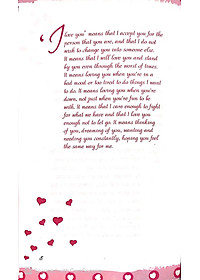 'I
love you" means that I accept you for the
person that you are, and that I do not
wish to change you into someone else.
It means that I will love you and stand
by you even through the worst of times.
It means loving you when you're in a
bad mood or too tired to do things I want
to do. It means loving you when you're
down, not just when you're fun to be
with. It means that I care enough to fight
for what we have and that I love you
enough not to let go. It means thinking
of you, dreaming of you, wanting and
needing you constantly, hoping you feel
the same way for me.